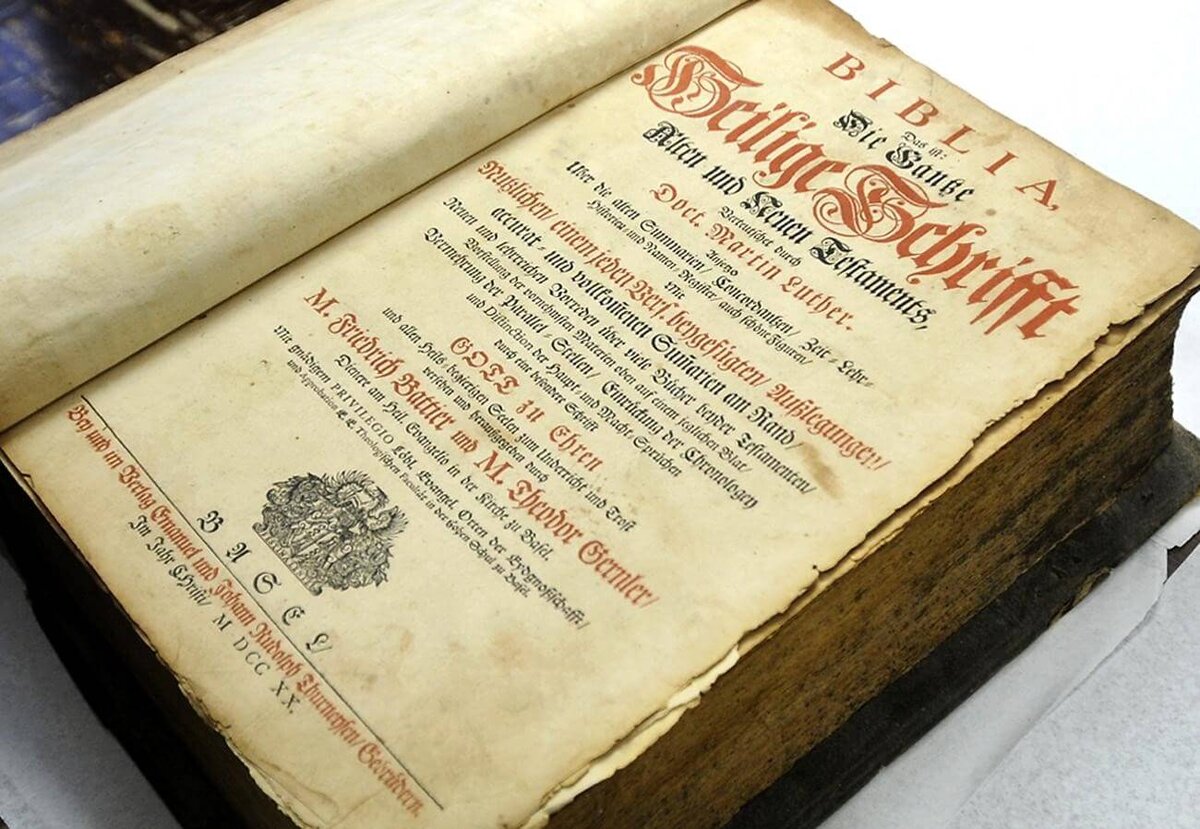 BIBLIA,
Das ist:
Die Gantze
Heilige Schrifft
Alten und Neuen Testaments,
Verteutschet durch
Doct. Martin Luther.
Anjetzo
Uber die alten Summarien/ Concordantzen/ Zeit- Lehr-
Historien- und Namen-Register/ auch schöne Figuren/
Mit
Nutzlichen/ einem jeden Vers. beygefügten/ Außlegungen/
accurat- und vollkom̄enen Sum̄arien am Rand/
Neuen und lehrreichen Vorreden über viele Bücher beyder Testamenten/
Vorstellung der vornehmsten Materien oben auf einem jeglichen Blat/
Vermehrung der Parallel Stellen/ Einruckung der Chronologey
und Distinction der Haupt- und Macht-Sprüchen
durch eine besondere Schrifft
GOTT zu Ehren
und allen Heils-begierigen Seelen zum Underricht und Trost
versehen und heraußgegeben durch
M. Friedrich Battier und M. Theodor Gernler/
Dienere am Heil. Evangelio in der Kirche zu Basel.
Mit gnädigem PRIVILEGIO Löbl. Evangel. Orten der Eydgnoßschafft/
und Approbation E. E. Theologischen Facultät in der hohen Schul zu Basel.
BASEL/
Bey und im Verlag Emanuel und Johann Rudolph Thurneysen/ Gebrüdern.
Im Jahr Christi/ M DCC XX.